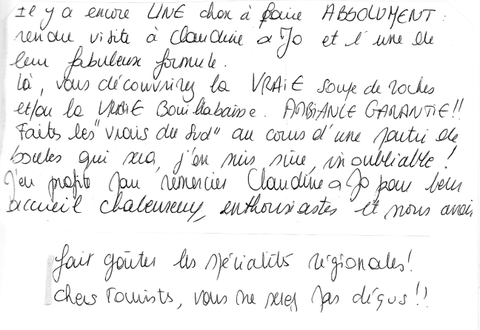 Il y a encore UNE chose à faire ABSOLUMENT :
rendre visite à Claudine & Jo et l'une de
leur fabuleuse formule.
Là, vous découvrirez la VRAIE soupe de roches
et/ou la VRAIE Bouillabaisse. AMBIANCE GARANTIE!!
Faites les "vrais du Sud" au cours d'une partie de
boules qui sera, j'en suis sûre, inoubliable !
J'en profite pour remercier Claudine & Jo pour leur
accueil chaleureux, enthousiastes et nous avoir
fait goûter les spécialités régionales!
Chers Tourists, vous ne serez pas déçus!!